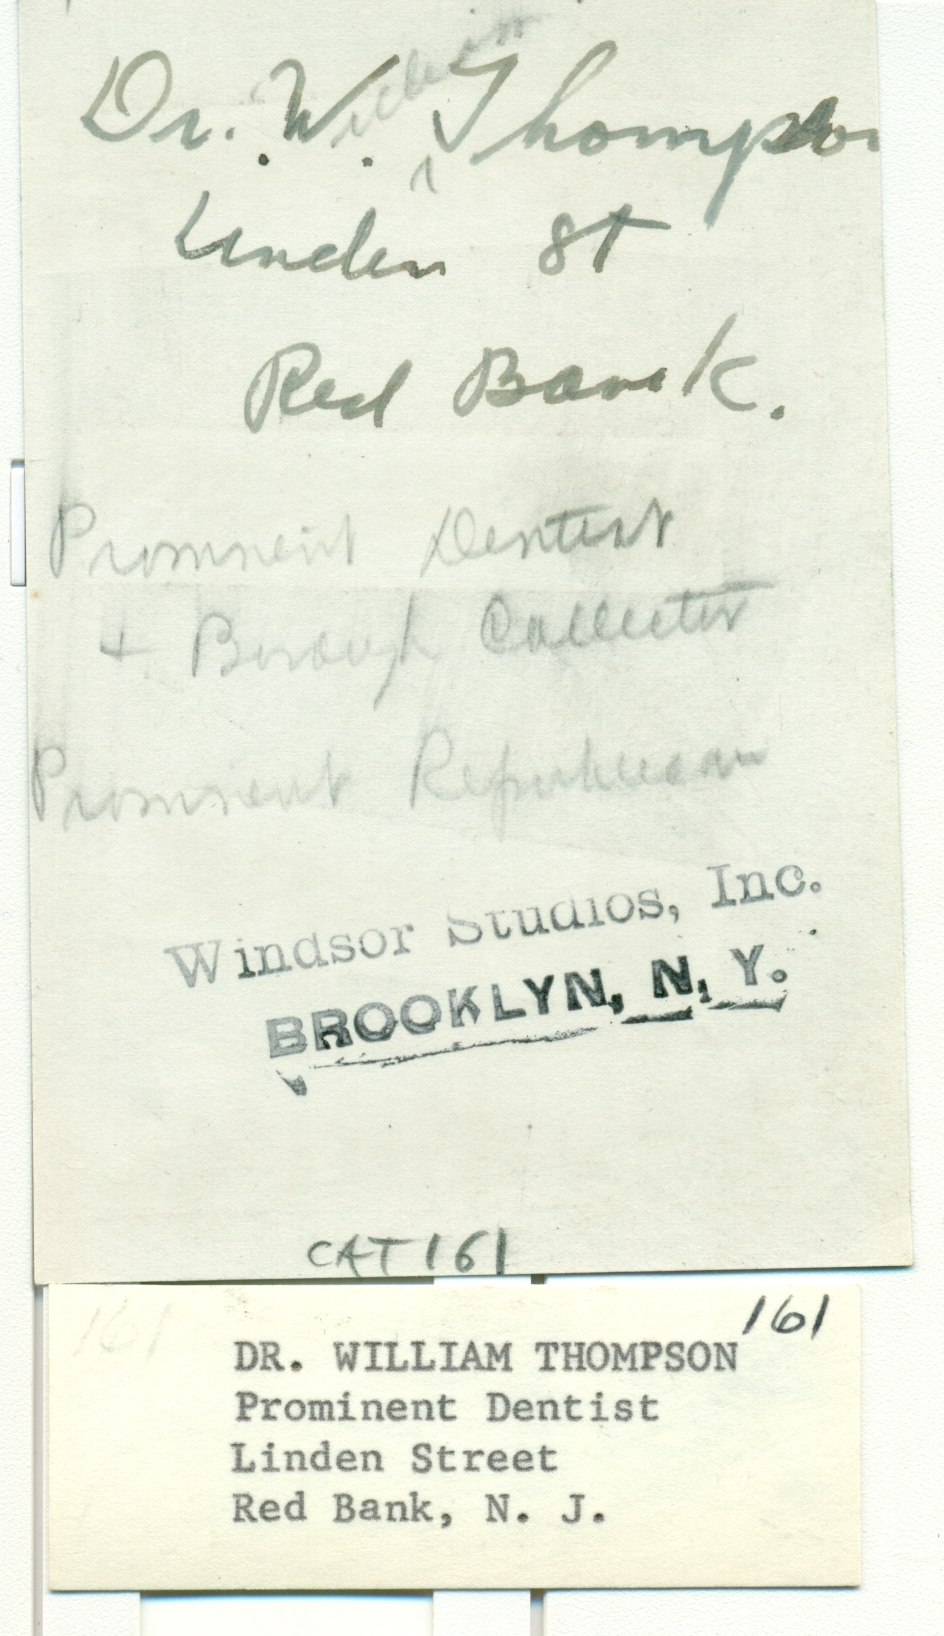 Dr. W. William Thompson
Linden St
Red Bank.
Prominent Dentist
+ Borough Collector
Prominent Republican
Windsor Studios, Inc.
BROOKLYN, N. Y.
CAT 161
161
161
DR. WILLIAM THOMPSON
Prominent Dentist
Linden Street
Red Bank, N. J.